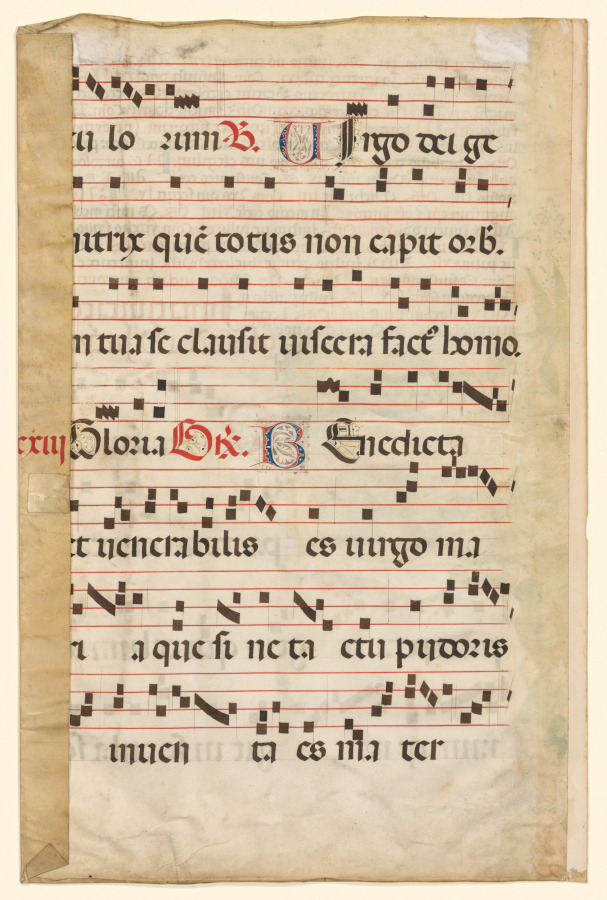 lo rum ℟. Uirgo dei ge
nitrix quē totus non capit orb.
in tua se clausit uiscera fact' homo.
cxiij Gloria Gr̄. Benedicta
et uenerabilis es uirgo ma
ri a que si ne ta ctu pudoris
inuen ta es ma ter